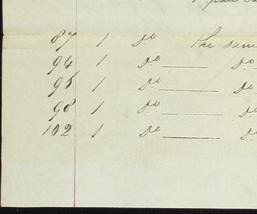 87 1 Do The same
94 1 Do Do
95 1 Do Do
98 1 Do Do
102 1 Do Do